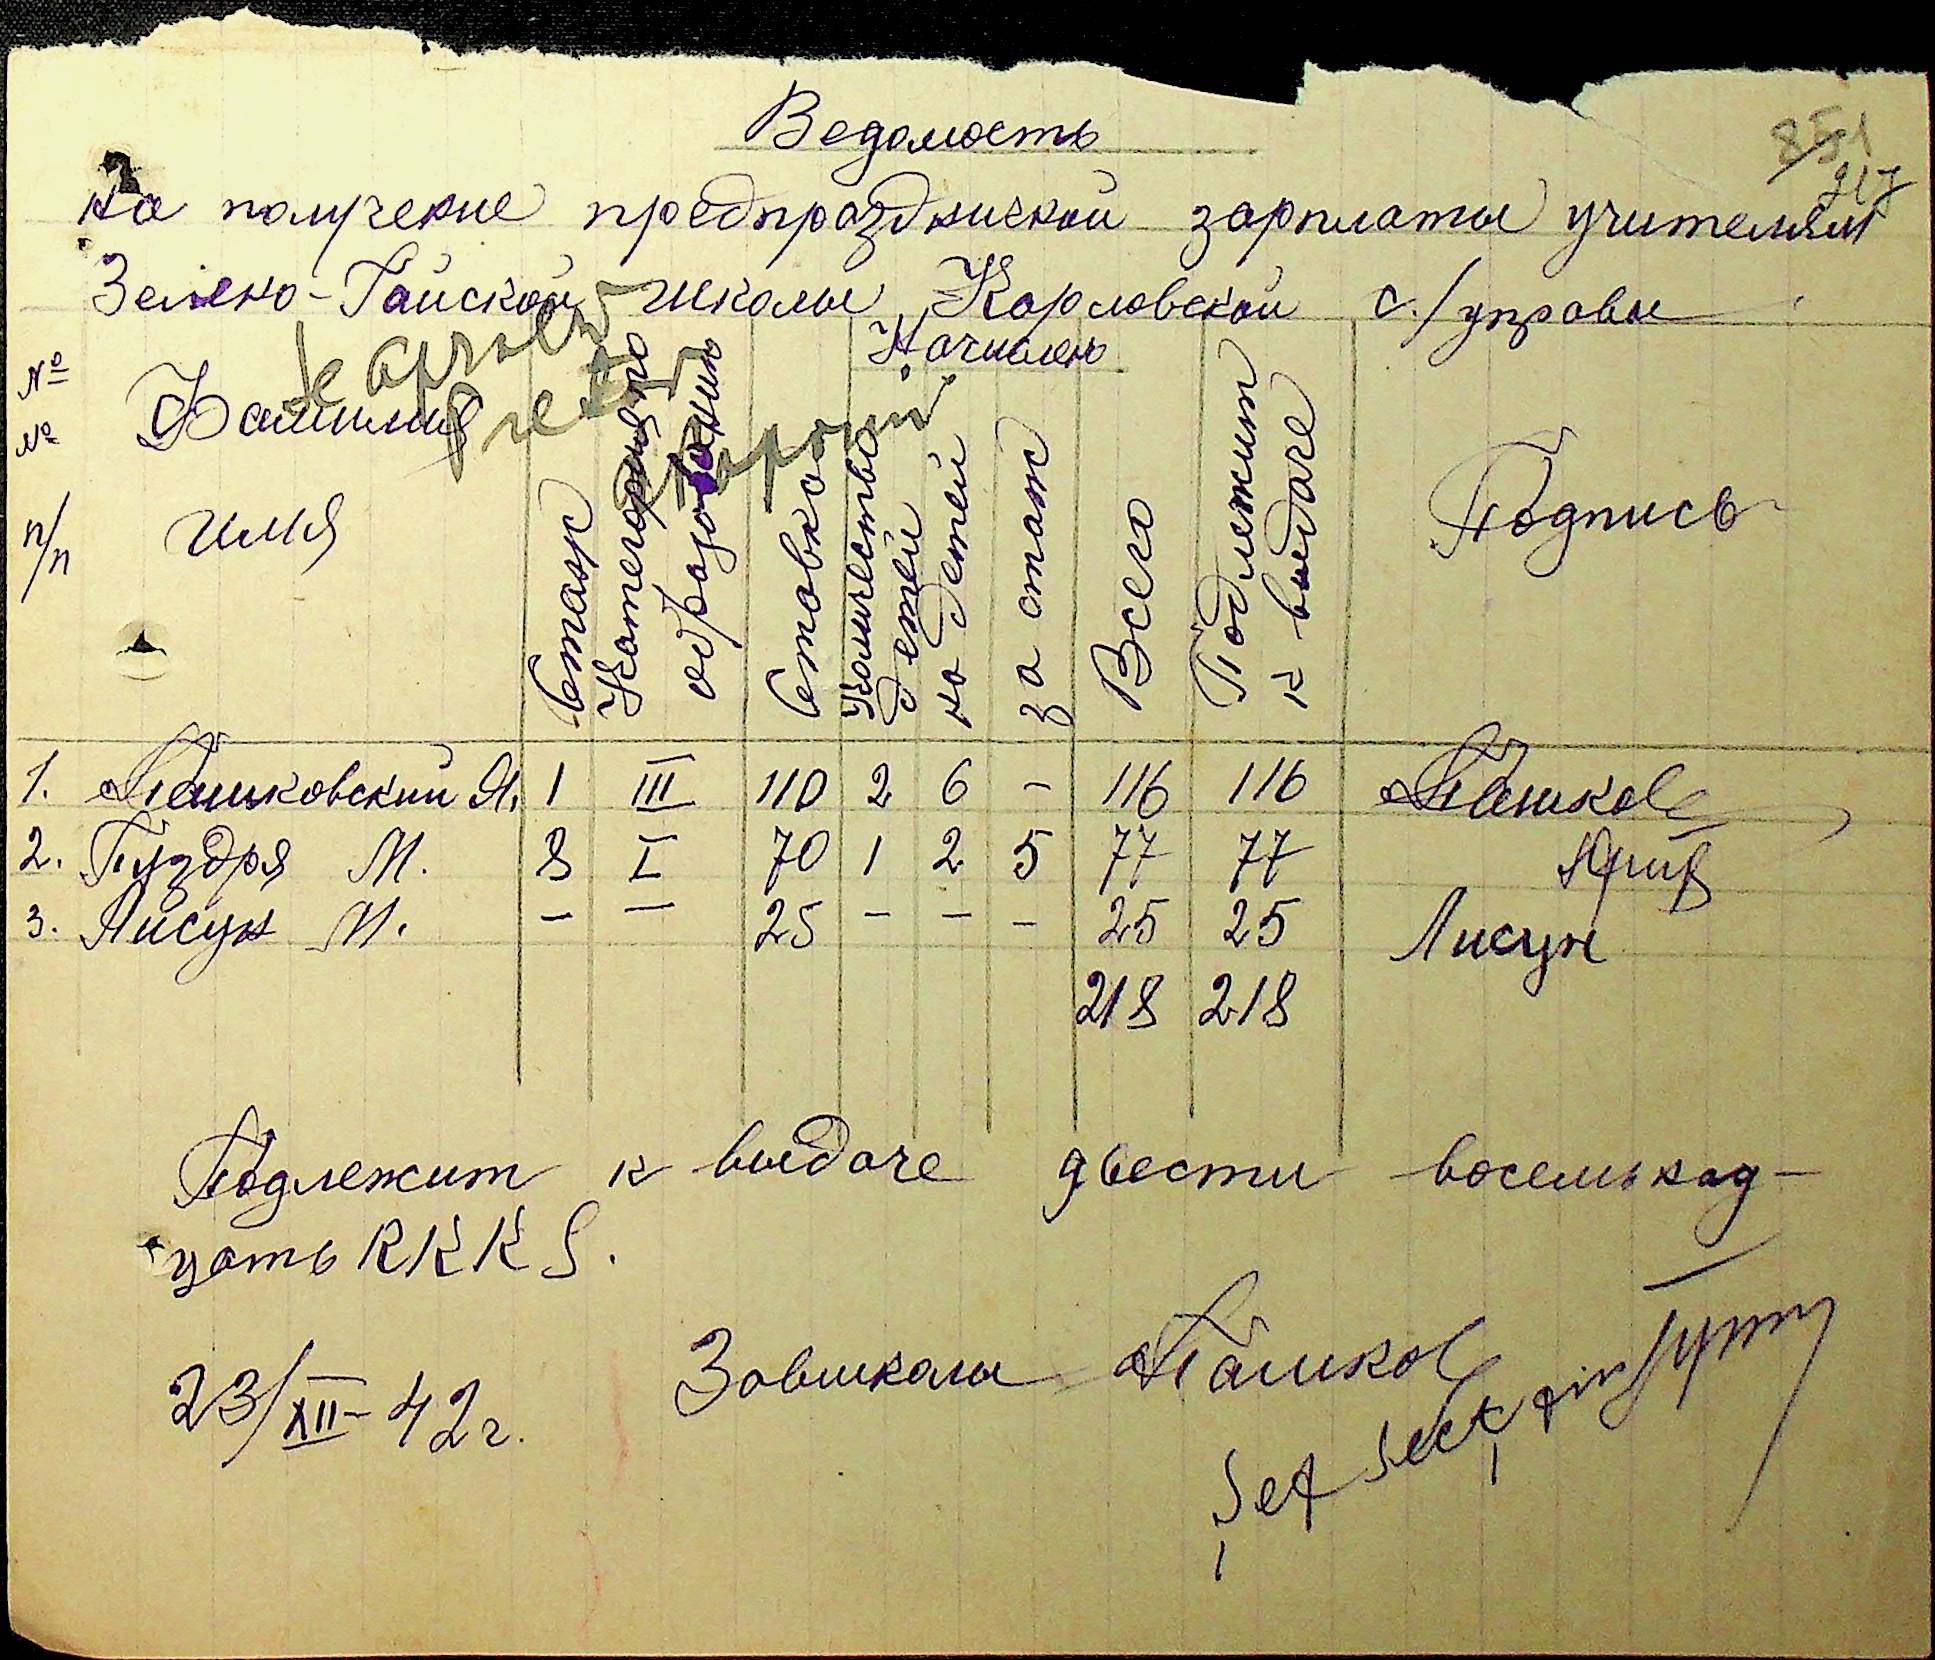 Ведомость
на получение предпраздничной зарплаты учителям
Зелено-Гайской школы Карловской с./управы
№ № п/п Фамилия имя Стаж Категория по образованию Ставка Количество детей Начислено на детей за стаж Всего Подлежит к выдаче Подпись
1. Пашковский Я. 1 III 110 2 6 - 116 116 Пашков
2. Пуздря М. 8 I 70 1 2 5 77 77
3. Лисун М. - - 25 - - - 25 25 Лисун
218 218
Подлежит к выдаче двести восемьнад-
цать RKKS.
23/XII-42г. Завшколы Пашков
851
217